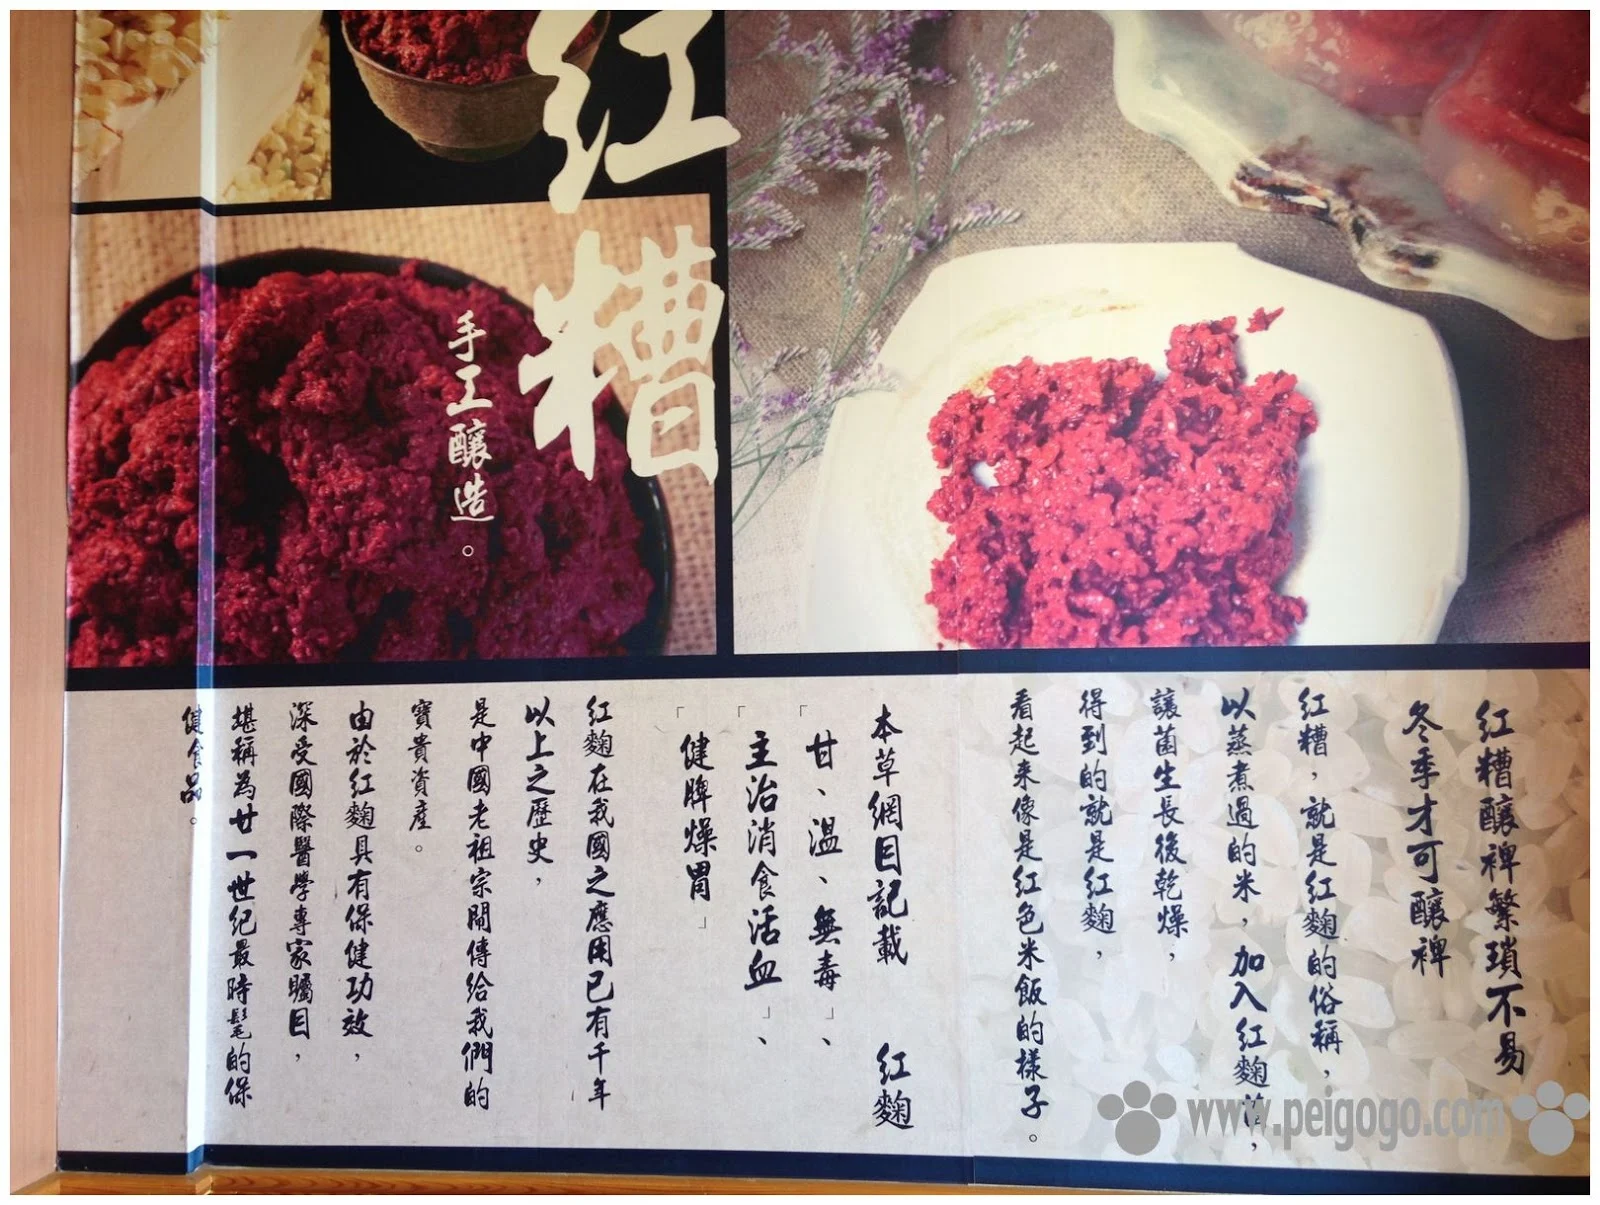 紅糟
手工釀造。
紅糟釀裨繁瑣不易
冬季才可釀裨
紅糟，就是紅麴的俗稱，
以蒸煮過的米，加入紅麴菌，
讓菌生長後乾燥，
得到的就是紅麴，
看起來像是紅色米飯的樣子。
本草網目記載 紅麴
「甘、溫、無毒」、
「主治消食活血」、
「健脾燥胃」
紅麴在我國之應用已有千年
以上之歷史，
是中國老祖宗開傳給我們的
寶貴資產。
由於紅麴具有保健功效，
深受國際醫學專家矚目，
堪稱為廿一世紀最時髦的保
健食品。
www.peigogo.com